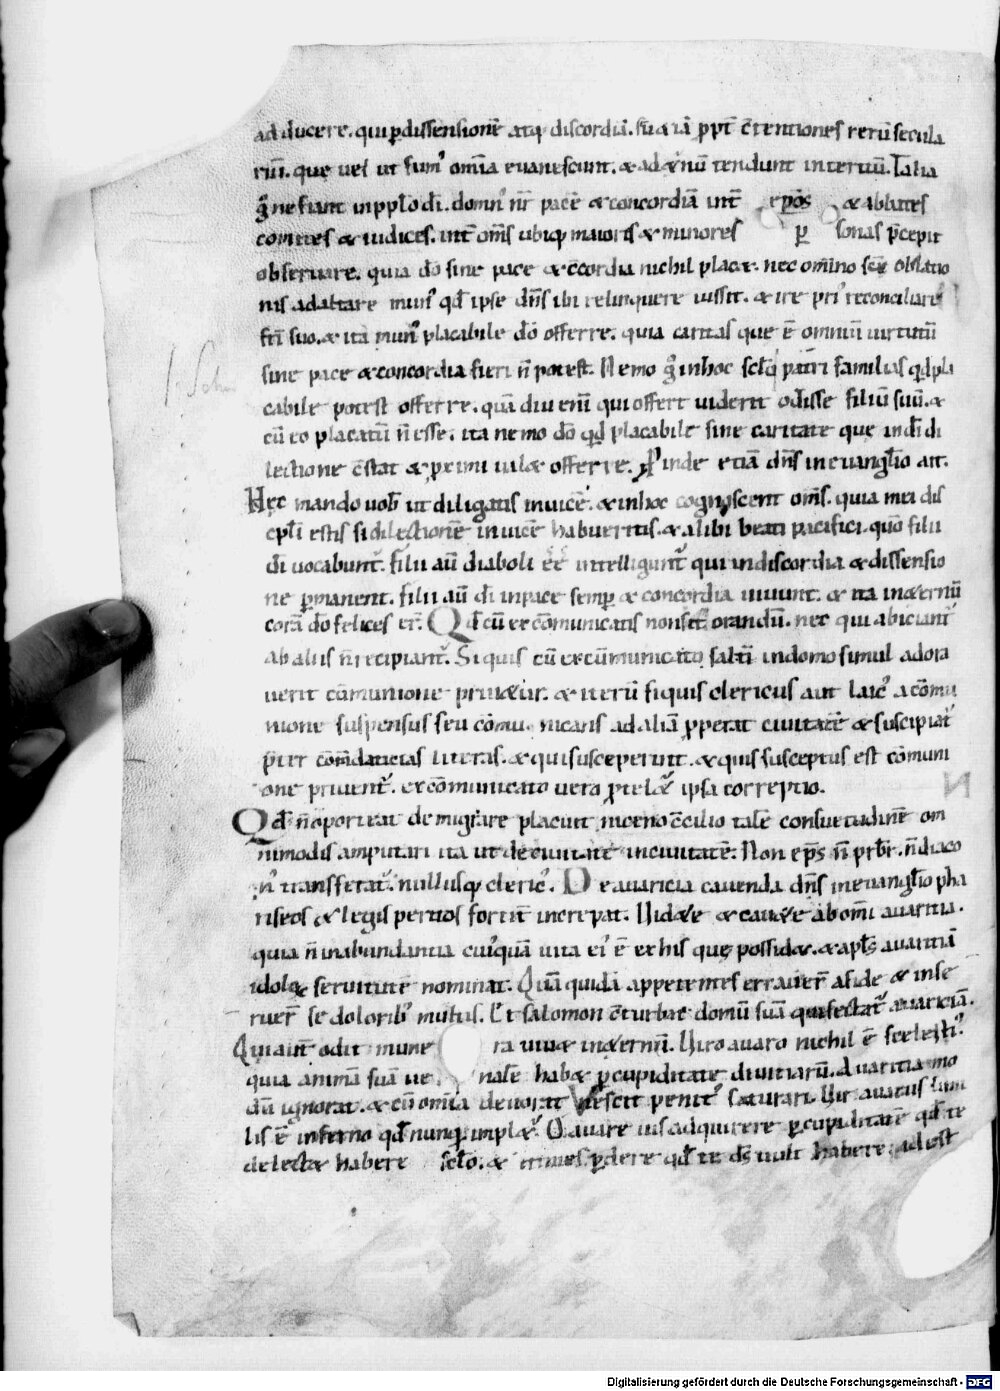 adducere. qui ꝑ dissensionē atq; discordiā. suā iā ꝓpt̄ c̄tentiones rerū secula
riū. que uel ut fum᾽ om̄ia euanescunt. & ad &̄nū tendunt interitū. Talia
g̊ ne fiant in pp̄lo dī. domn᾽ nr̄ pacē & concordiā int̄ ep̄os & abbates
comites & iudices. int̄ om̄s ubiq; maioris & minores ꝑ sonas p̄cepit
obseruare. quia dō sine pace & c̄cordia nichil plac&. nec om̄ino sc̄e oblatio
nis ad altare mun᾽ qd̄ ipse dn̄s ibi relinquere iussit. & ire pri᾽ reconciliare
fr̄i suo. & ita mun᾽ placabile dō offerre. quia caritas que ē omniū uirtutū
sine pace & concordia fieri n̄ potest. Nemo g̊ in hoc sc̄lo patri familias qd̄ pla
cabile potest offerre. quā diu eni qui offert uiderit odisse filiū suū. &
cū eo placatū n̄ esse. ita nemo dō qd̄ placabile sine caritate que in dī di
lectione c̄stat & ꝓximi ual& offerre. ꝓinde etiā dn̄s in euangl̄io ait.
Hec mando uob̄ ut diligatis inuicē. & in hoc cognoscent om̄s. quia mei dis
cpl̄i estis si dilectionē inuicē habueritis. & alibi beati pacifici. quō filii
dī uocabunt᾽. filii aū diaboli ee᾽ intelligunt᾽ qui in discordia & dissensio
ne ꝑmanent. filii aū dī in pace semꝑ & concordia uiuunt. & ita in &̄ernū
corā dō felices er̄. Qd̄ cū excōmunicatis non sit orandū. nec qui abiciant᾽
ab aliis n̄ recipiant᾽. Si quis cū excūmunicato saltī in domo simul adora
uerit cōmunione priu&ur. & iterū si quis clericus aut laic᾽ a cōmu
nione suspensus seu cōmu nicans ad aliā ꝓperat ciuitatē & suscipiat᾽
p̄ter cōm̄daticias litteras. & qui susceperint. & quis susceptus est cōmuni
one priuent᾽. excōmunicato uero ꝓtel&᾽ ipsa correptio.
Qd̄ n̄ oporteat demigrare placuit niceno c̄cilio talē consuetudinē om
nimodis amputari ita ut de ciuitate in ciuitatē. Non ep̄s n̄ prbr̄. n̄ diaco
n᾽ transferat᾽. nullusq; cleric᾽. De auaricia cauenda dn̄s in euangl̄io pha
riseos & legis peritos fortit̄ increpat. Uid&e & cau&e ab om̄i auaritia.
quia n̄ in abundantia cui᾽quā uita ei᾽ ē ex his que possid&. & apl̄s auaritiā
idolo& seruitutē nominat. Quā quidā appetentes errauer̄ a fide & inse
ruer̄ se dolorib᾽ multis. Et salomon c̄turbat domū suā qui sectat᾽ auariciā.
Qui aūt odit mune ra uiu& in &ernū. Uiro auaro nichil ē scelesti᾽.
quia animā suā ue nalē hab& ꝑ cupiditate diuitiarū. Auaritia mo
dū ignorat. & cū om̄ia deuorat nescit penit᾽ saturari. Uir auarus simi
lis ē inferno qd̄ nunquā impl&᾽. O auare uis adquirere ꝑ cupiditatē qd̄ te
delect& habere sc̄lo. & times ꝑdere qd̄ te ds̄ uult habere. id est
Digitalisierung gefördert durch die Deutsche Forschungsgemeinschaft - DFG